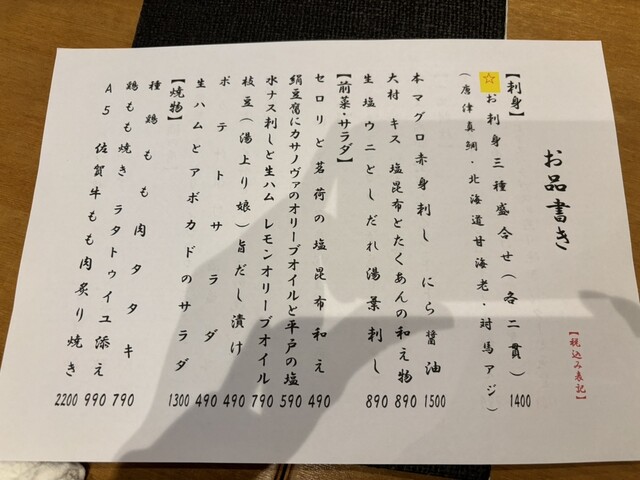 お品書き
【税込み表記】
【刺身】
☆お刺身三種盛合せ(各二貫) 1400
(唐津真鯛・北海道甘海老・対馬アジ)
本マグロ赤身刺し にら醤油 1500
大村 キス 塩昆布とたくあんの和え物 890
生塩ウニとしだれ湯葉刺し 890
【前菜・サラダ】
セロリと茗荷の塩昆布和え 490
絹豆腐にカサノヴァのオリーブオイルと平戸の塩 590
水ナス刺しと生ハム レモンオリーブオイル 790
枝豆(湯上り娘)旨だし漬け 490
ポテトサラダ 490
生ハムとアボカドのサラダ 1300
【焼物】
種鶏もも肉タタキ 790
鶏もも焼き ラタトゥイユ添え 990
A5 佐賀牛もも肉炙り焼き 2200